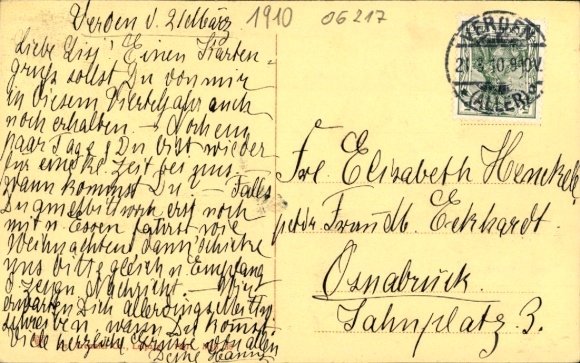 Verden d. 21 März 1910 06217
Liebe Lisj! Einen Karten-
gruß sollst Du von mir
in diesem Vierteljahr auch
noch erhalten. — Noch ein
paar Tage & Du bist wieder
für eine Zeit bei uns.
wann kommst Du? — Falls
Du am Mittwoch erst noch
mit n. Essen fährst wie
Weihnachten dann schicke
uns bitte gleich n. Empfang
d. Zeilen Nachricht — Wir
erwarten Dich allerdings
schreiben, wann Du kommst
Viele herzliche Grüße von allen
Deine Hanna
VERDEN
21.3.10.9-10V.
(ALLER)
Frl. Elisabeth Henckel
per Adr. Frau Dr. Eckhardt.
Osnabrück.
Jahnplatz 3.